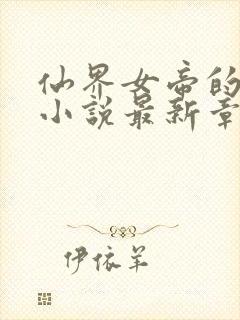 仙界女帝的
小說最新章
伊依羊